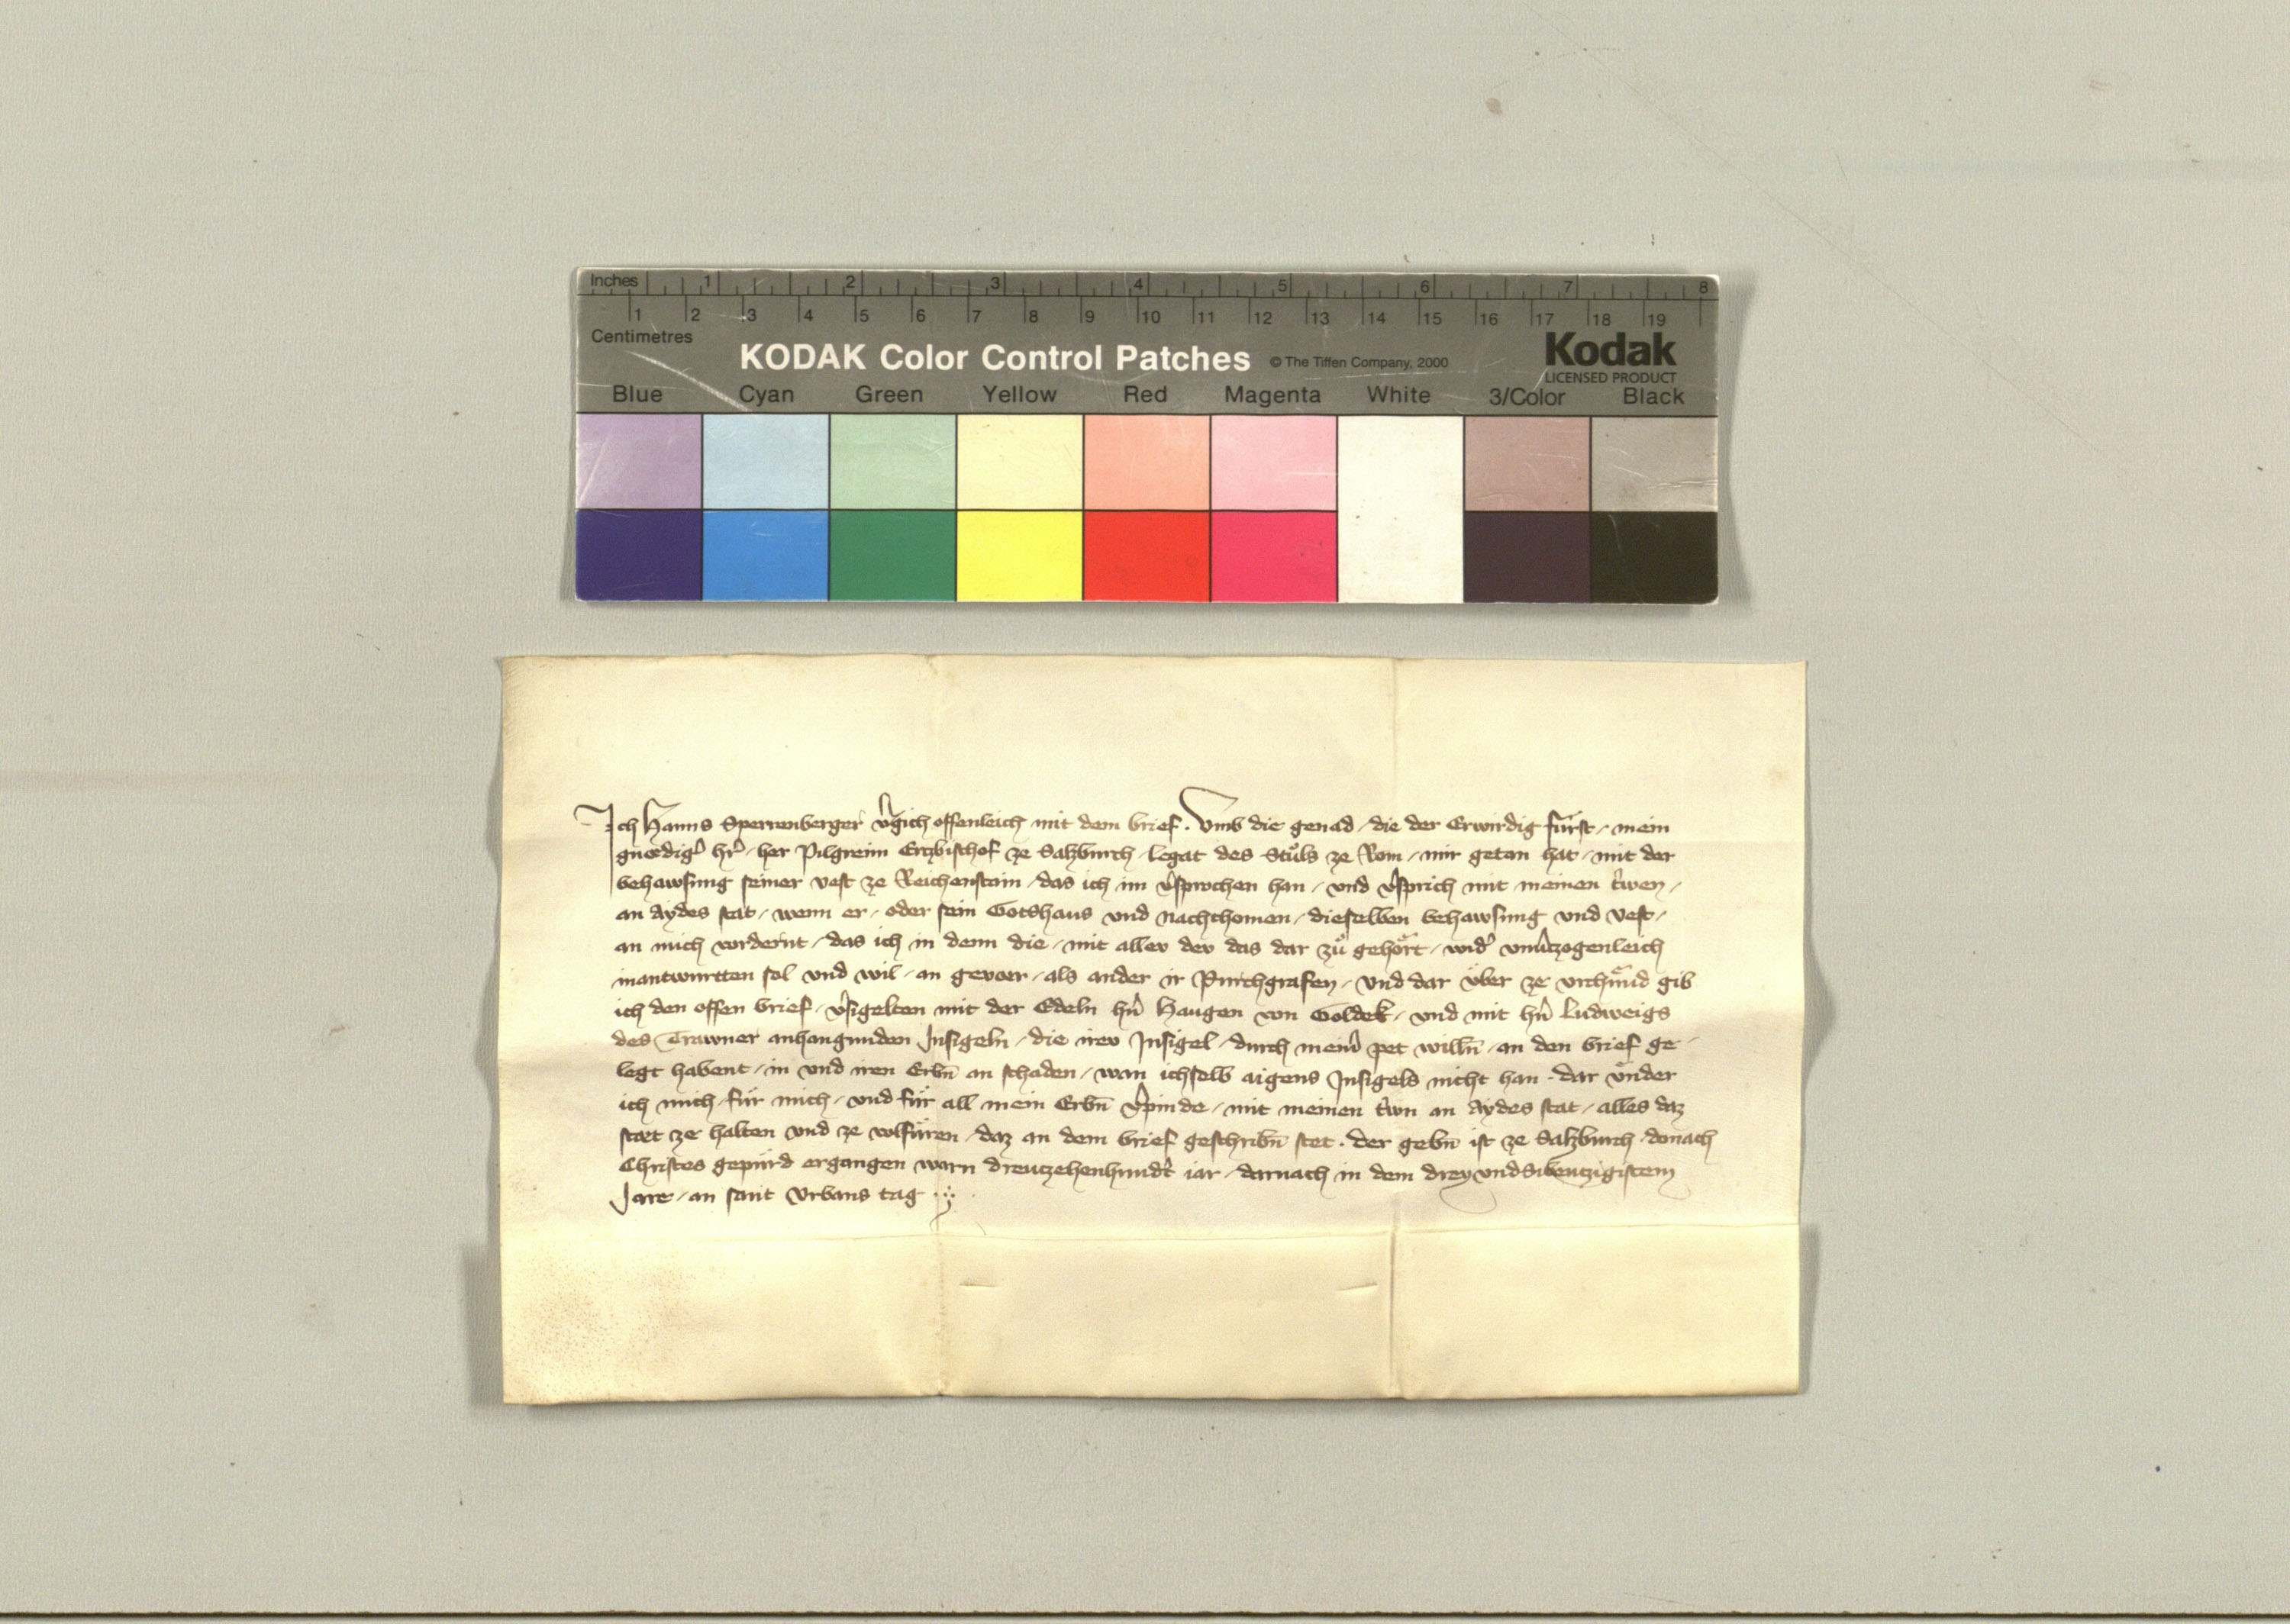 Inches 1 2 3 4 5 6 7 8
1 2 3 4 5 6 7 8 9 10 11 12 13 14 15 16 17 18 19
Centimetres
KODAK Color Control Patches © The Tiffen Company, 2000 Kodak
LICENSED PRODUCT
Blue Cyan Green Yellow Red Magenta White 3/Color Black
Ich Hanns Sperrenberger v̂gich offenleich mit dem brief. Vmb die genad / die der Erwirdig fürst / mein
gnedig̉ hr̉ / her Pilgreim Ertzbischof ze Salzburch / legat des Stůls ze Rom / mir getan hat / mit der
behawsung seiner vest ze Reichenstain / das ich im v̉sprochen han / vnd v̉sprich mit meinen trwen /
an aydes stat / wenn er / oder sein Gotshaus vnd nachchomen / dieselben behawsung vnd vest /
an mich vordernt / das ich in denn die / mit aller der das dar zů gehört / wid̉ vnủtzogenleich
inantwurtten sol vnd wil / an gevær / als ander ir Purchgrafen / vnd dar über ze vrchünd gib
ich den offen brief / v̉sigelten mit der Edeln hn̉ Haugen von Goldek / vnd mit hn̉ Ludweigs
des Trawner anhangunden Insigeln / die irew Insigel / durch mein̉ pet willn̄ / an den brief ge-
legt habent / in vnd iren Erbn̄ an schaden / wan ich selb aigens Insigels nicht han. dar ünder
ich mich für mich / vnd für all mein Erbn̄ v̉pinde / mit meinen trwn an aydes stat / alles daz
stæt ze halten vnd ze volfüren / daz an dem brief geschribn̄ stet. der gebn̄ ist ze Salzburch / do nach
Christes gepürd ergangen warn dreutzehenhundt̉ iar / darnach in dem drey vnd Sibentzigistem
Jare / an sant Vrbans tag